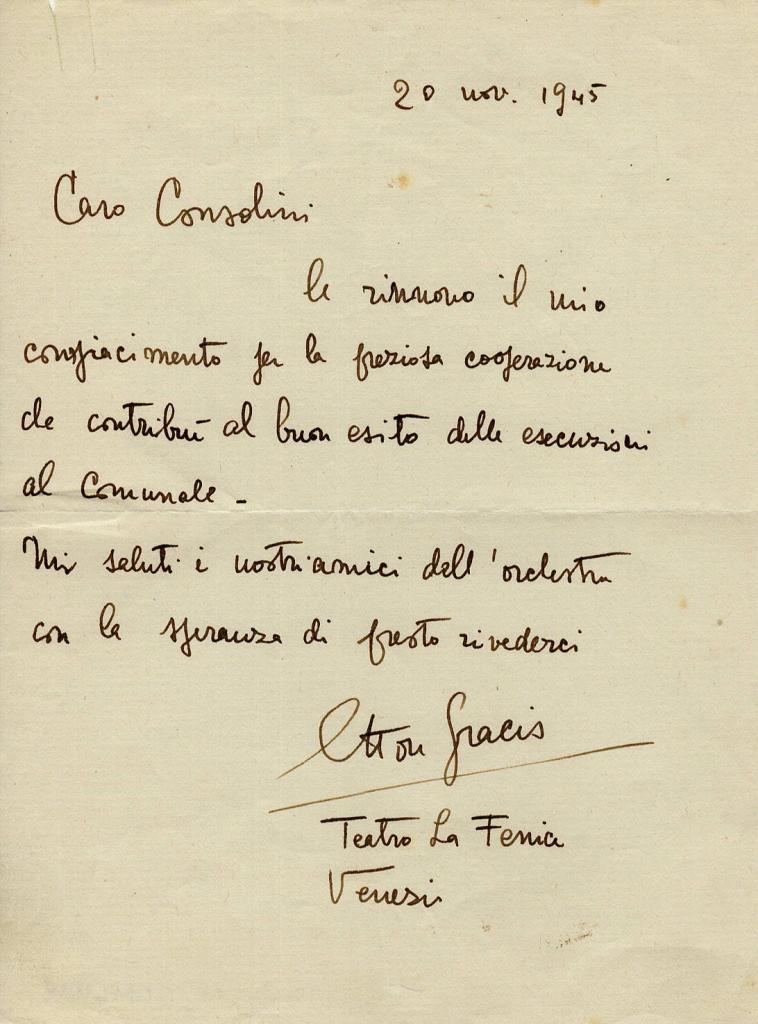 20 nov. 1945
Caro Consolini
le rinnovo il mio
compiacimento per la preziosa cooperazione
che contribuì al buon esito delle esecuzioni
al Comunale -
Mi saluti i nostri amici dell'orchestra
con la speranza di presto rivederci
Ettore Gracis
Teatro La Fenice
Venezia